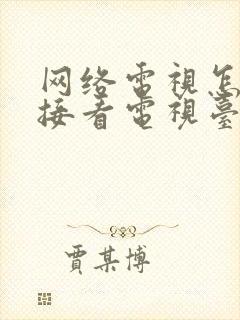 网络電視怎
接看電視臺
賈某博